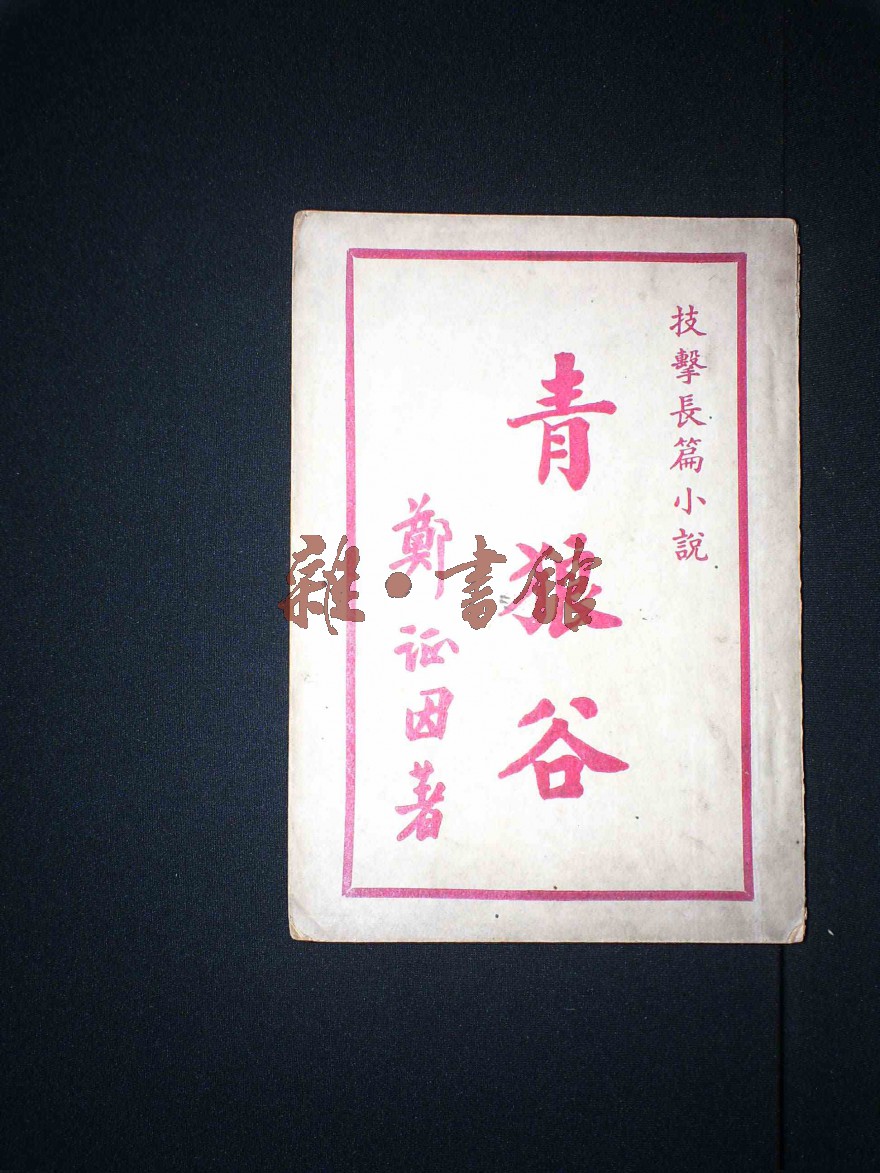 技擊長篇小說
青狼谷
鄭証因著
雜·書館